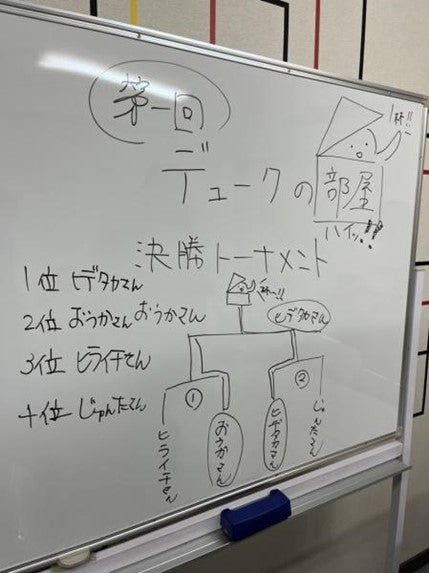 第一回
デュークの部屋
1杯!!
ハイッ!!
決勝トーナメント
1位 ヒデタカさん
2位 おうかさん おうかさん
3位 ヒライチさん
十位 じゅんたさん
杯〜!!
ヒデタカさん
①
②
ヒライチさん
おうかさん
ヒデタカさん
じゅんたさん